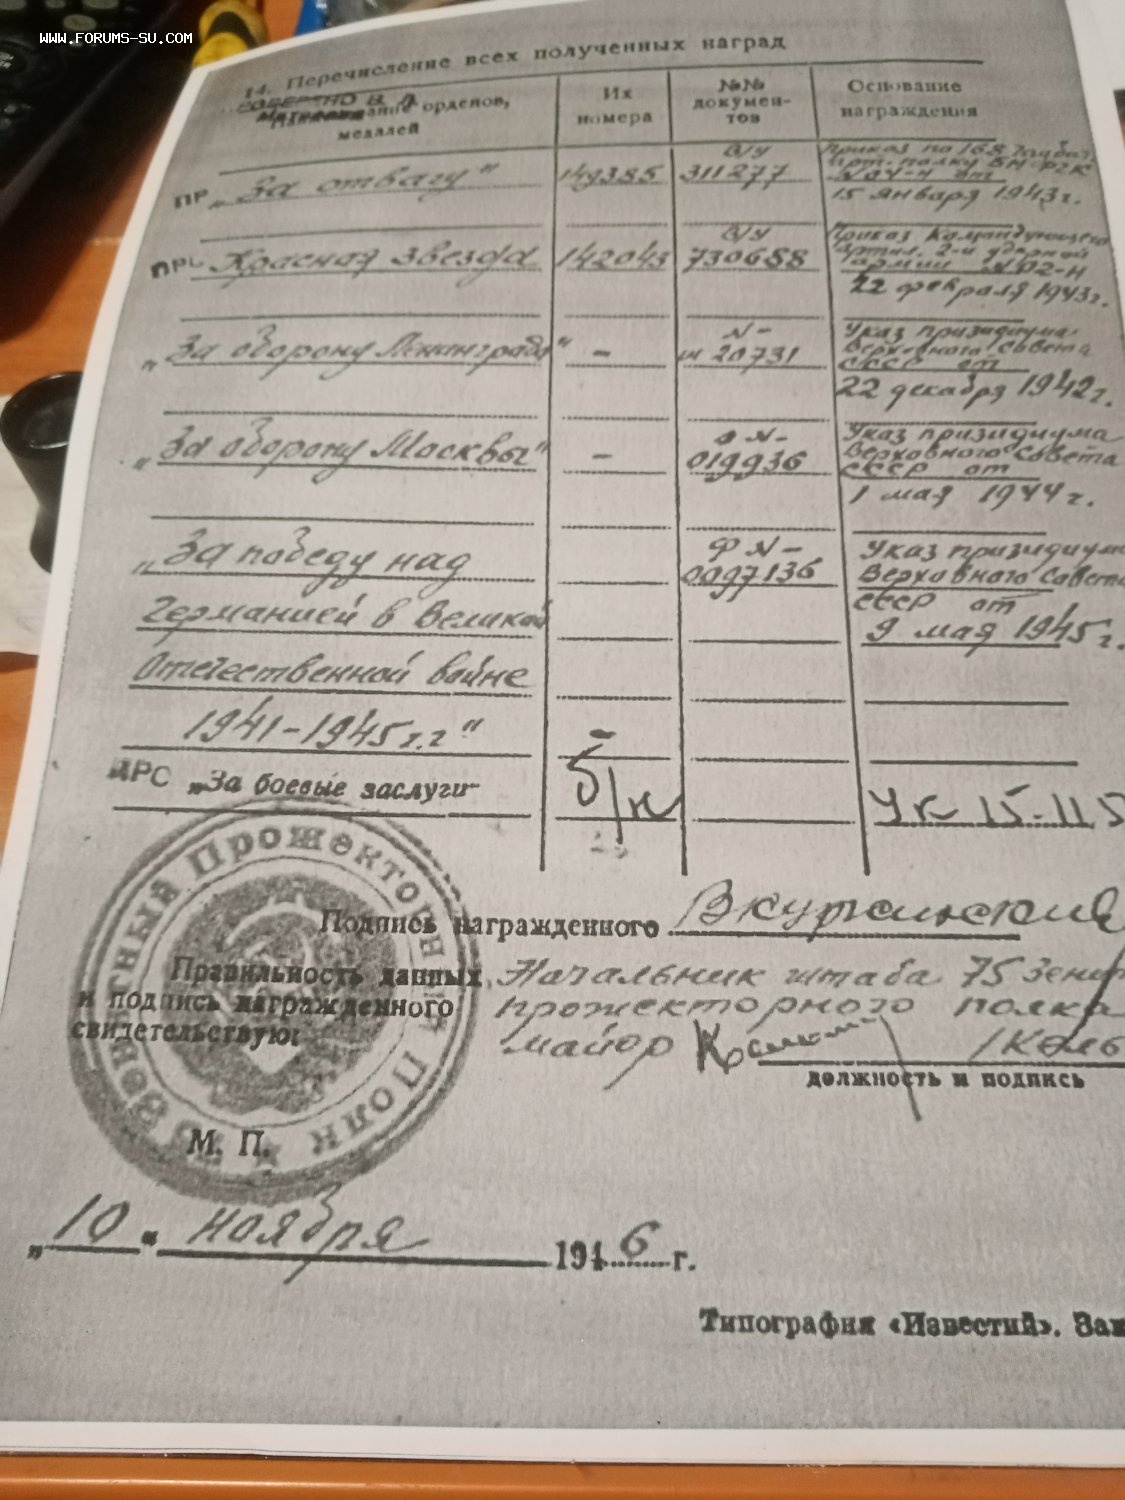 WWW.FORUMS-SU.COM
14. Перечисление всех полученных наград
орденов,
медалей
Их
номера
№№
докумен-
тов
Основание
награждения
ПР „За отвагу“
149385
в/у
311277
Приказ по 168
арт. полку
от
15 января 1943 г.
Красная Звезда
142043
в/у
730688
Приказ Командующего
артил. 2-й ударной
армии №02-Н
22 февраля 1943г.
„За оборону Ленинграда“
–
N–
20731
Указ призидиума
Верховного совета
СССР от
22 декабря 1942 г.
„За оборону Москвы“
–
N–
019936
Указ призидиума
Верховного совета
СССР от
1 мая 1944 г.
„За победу над
Германией в Великой
Отечественной войне
1941–1945 г.г“
–
Ф N–
0097136
Указ призидиума
Верховного совета
СССР от
9 мая 1945 г.
„За боевые заслуги“
б/н
УК 15-11
Подпись награжденного
Правильность данных
и подпись награжденного
свидетельствую:
Начальник штаба 75 Зенит
прожекторного полка
майор
должность и подпись
Зенитный Прожекторный Полк
М. П.
„10“ ноября 1946 г.
Типография «Известий». Зак